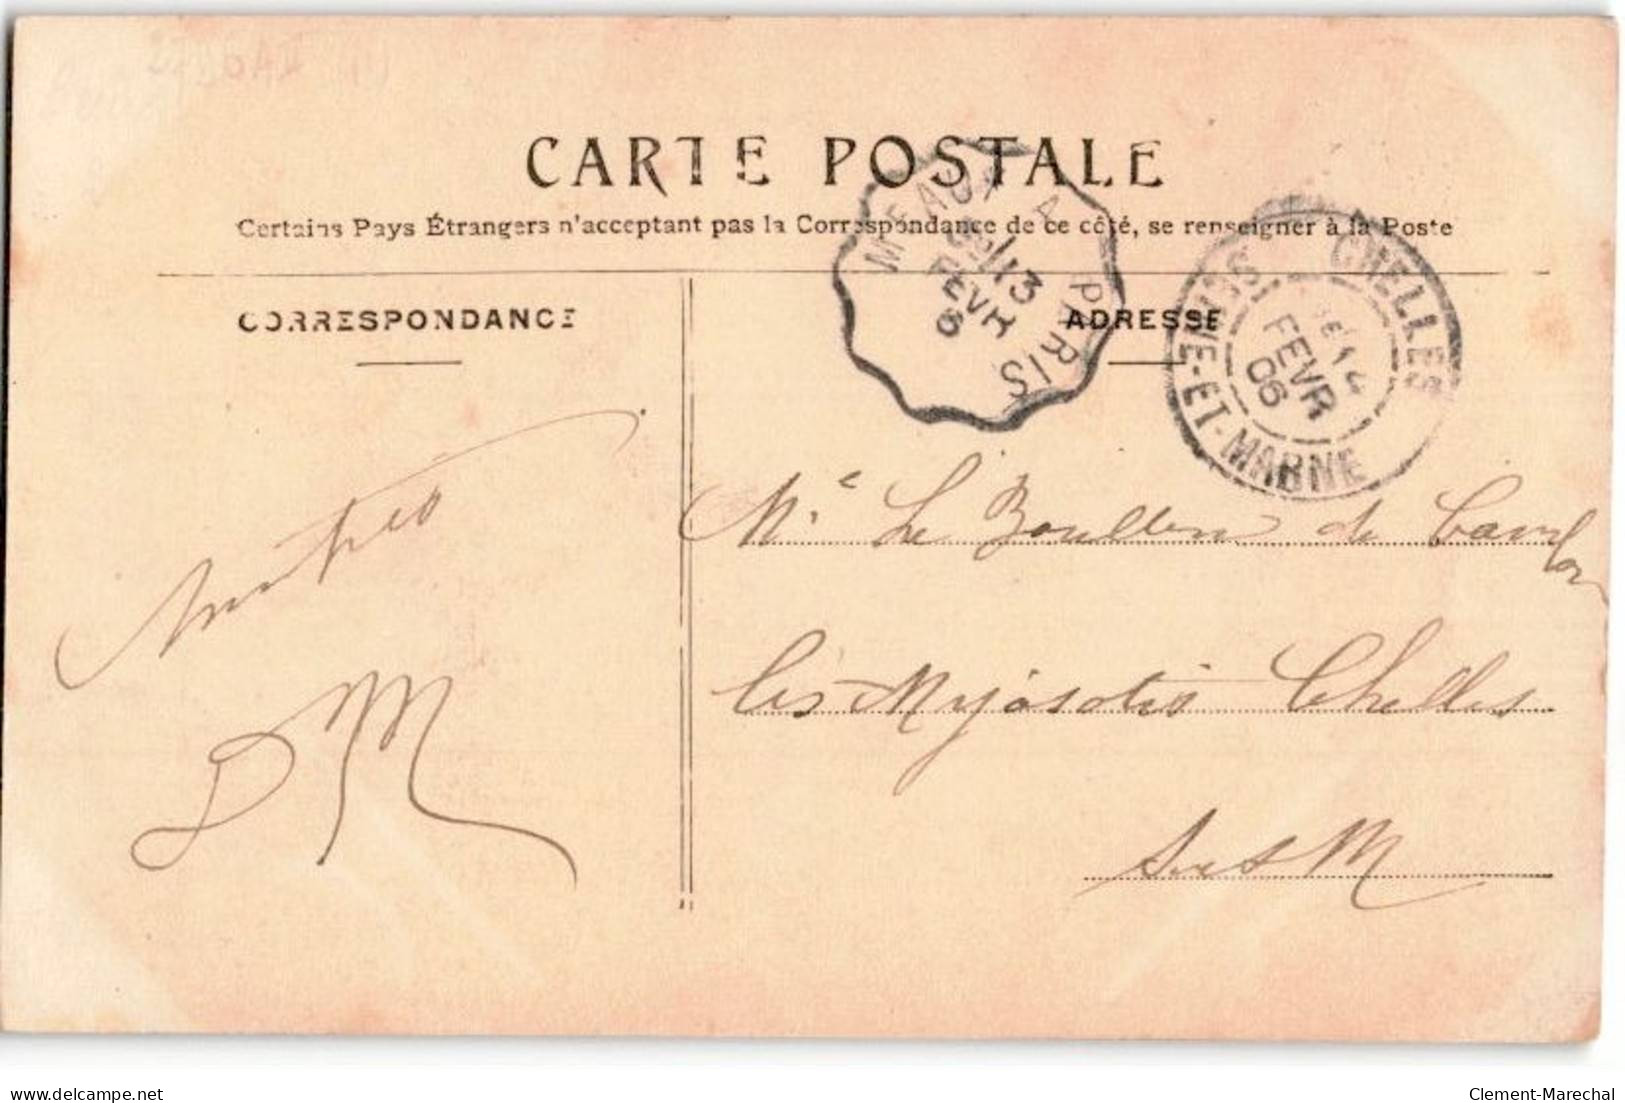 CARTE POSTALE
Certains Pays Étrangers n'acceptant pas la Correspondance de ce côté, se renseigner à la Poste
CORRESPONDANCE
ADRESSE
MEAUX A PARIS
13
FEVR
6
CHELLES
SEINE-ET-MARNE
FEVR
06
DM
Le Boullen de
les Myosotis Chelles
S et M
delcampe.net
Clement-Marechal